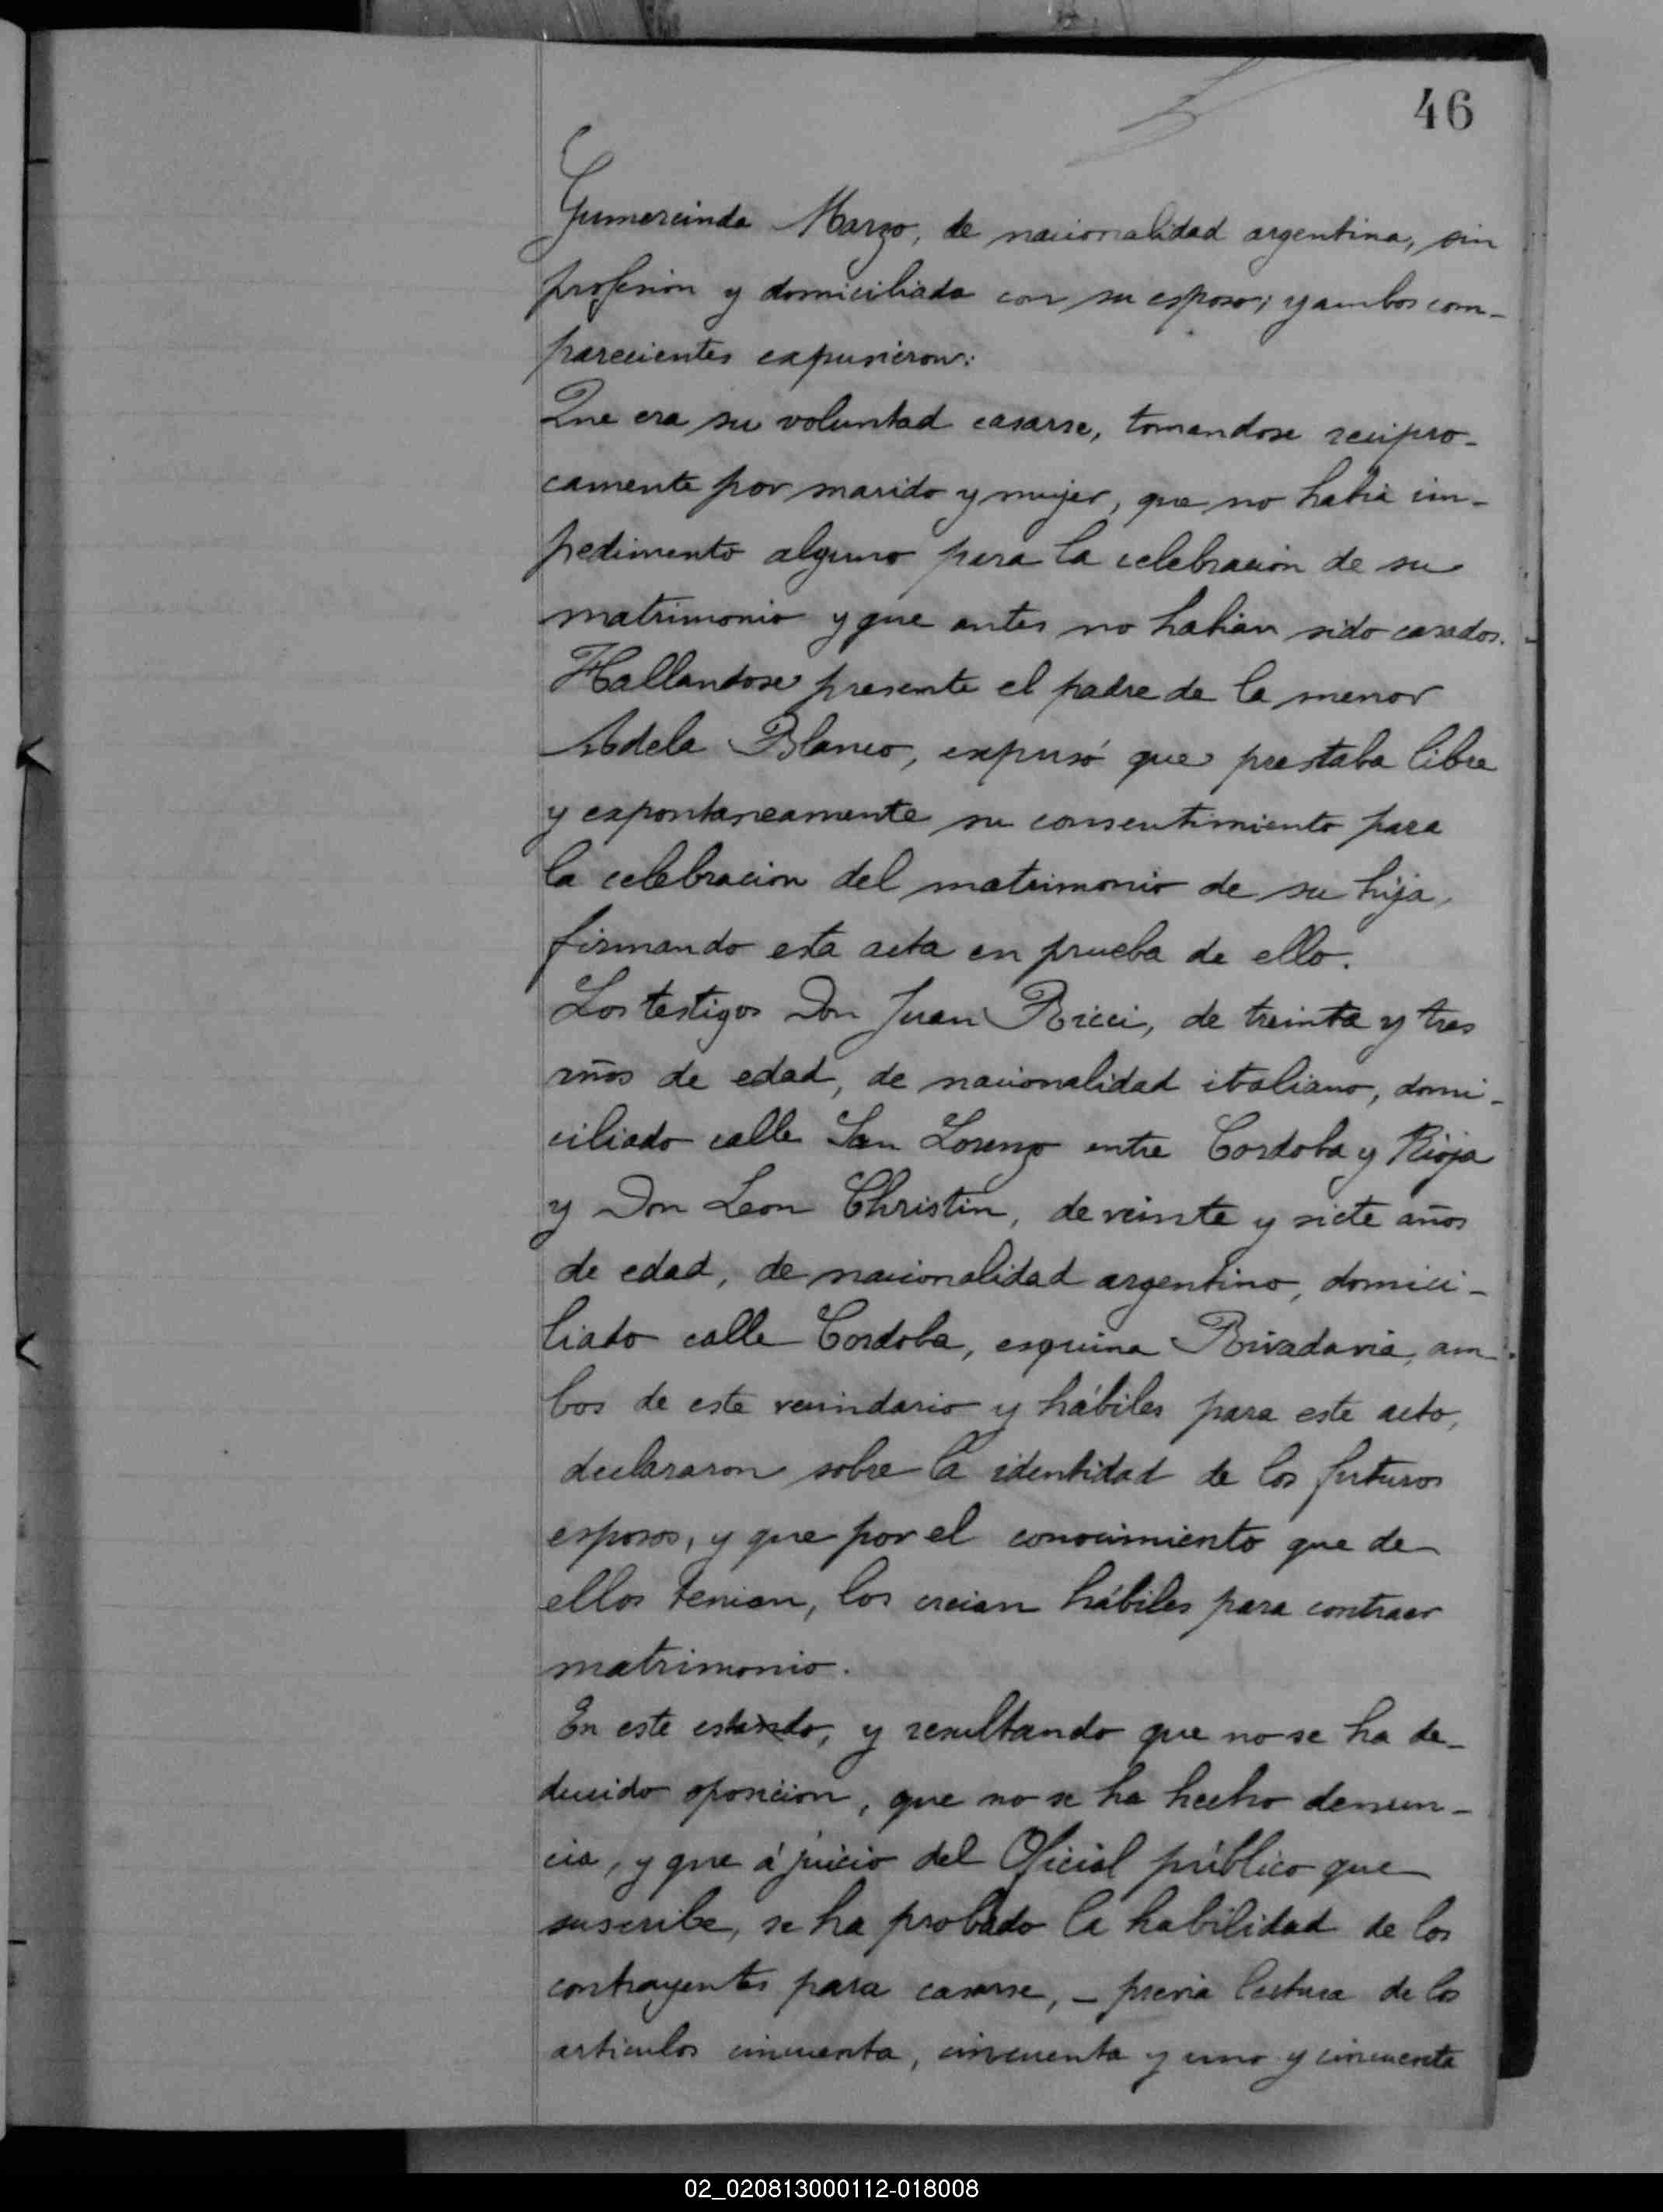 46
Gumercinda Marzo, de nacionalidad argentina, sin
profesion y domiciliada con su esposo; y ambos com-
parecientes expusieron:
Que era su voluntad casarse, tomandose recipro-
camente por marido y mujer, que no habia im-
pedimento alguno para la celebracion de su
matrimonio y que antes no habian sido casados.
Hallandose presente el padre de la menor
Adela Blanco, expusó que prestaba libre
y expontaneamente su consentimiento para
la celebracion del matrimonio de su hija,
firmando esta acta en prueba de ello.
Los testigos Don Juan Ricci, de treinta y tres
años de edad, de nacionalidad italiano, domi-
ciliado calle San Lorenzo entre Cordoba y Rioja
y Don Leon Christin, de veinte y siete años
de edad, de nacionalidad argentino, domici-
liado calle Cordoba, esquina Rivadavia, am-
bos de este vecindario y hábiles para este acto,
declararon sobre la identidad de los futuros
esposos, y que por el conocimiento que de
ellos tenian, los creian hábiles para contraer
matrimonio.
En este estando, y resultando que no se ha de-
ducido oposicion, que no se ha hecho denun-
cia, y que á juicio del Oficial público que
suscribe, se ha probado la habilidad de los
contrayentes para casarse, - previa lectura de los
articulos cincuenta, cincuenta y uno y cincuenta
02_020813000112-018008